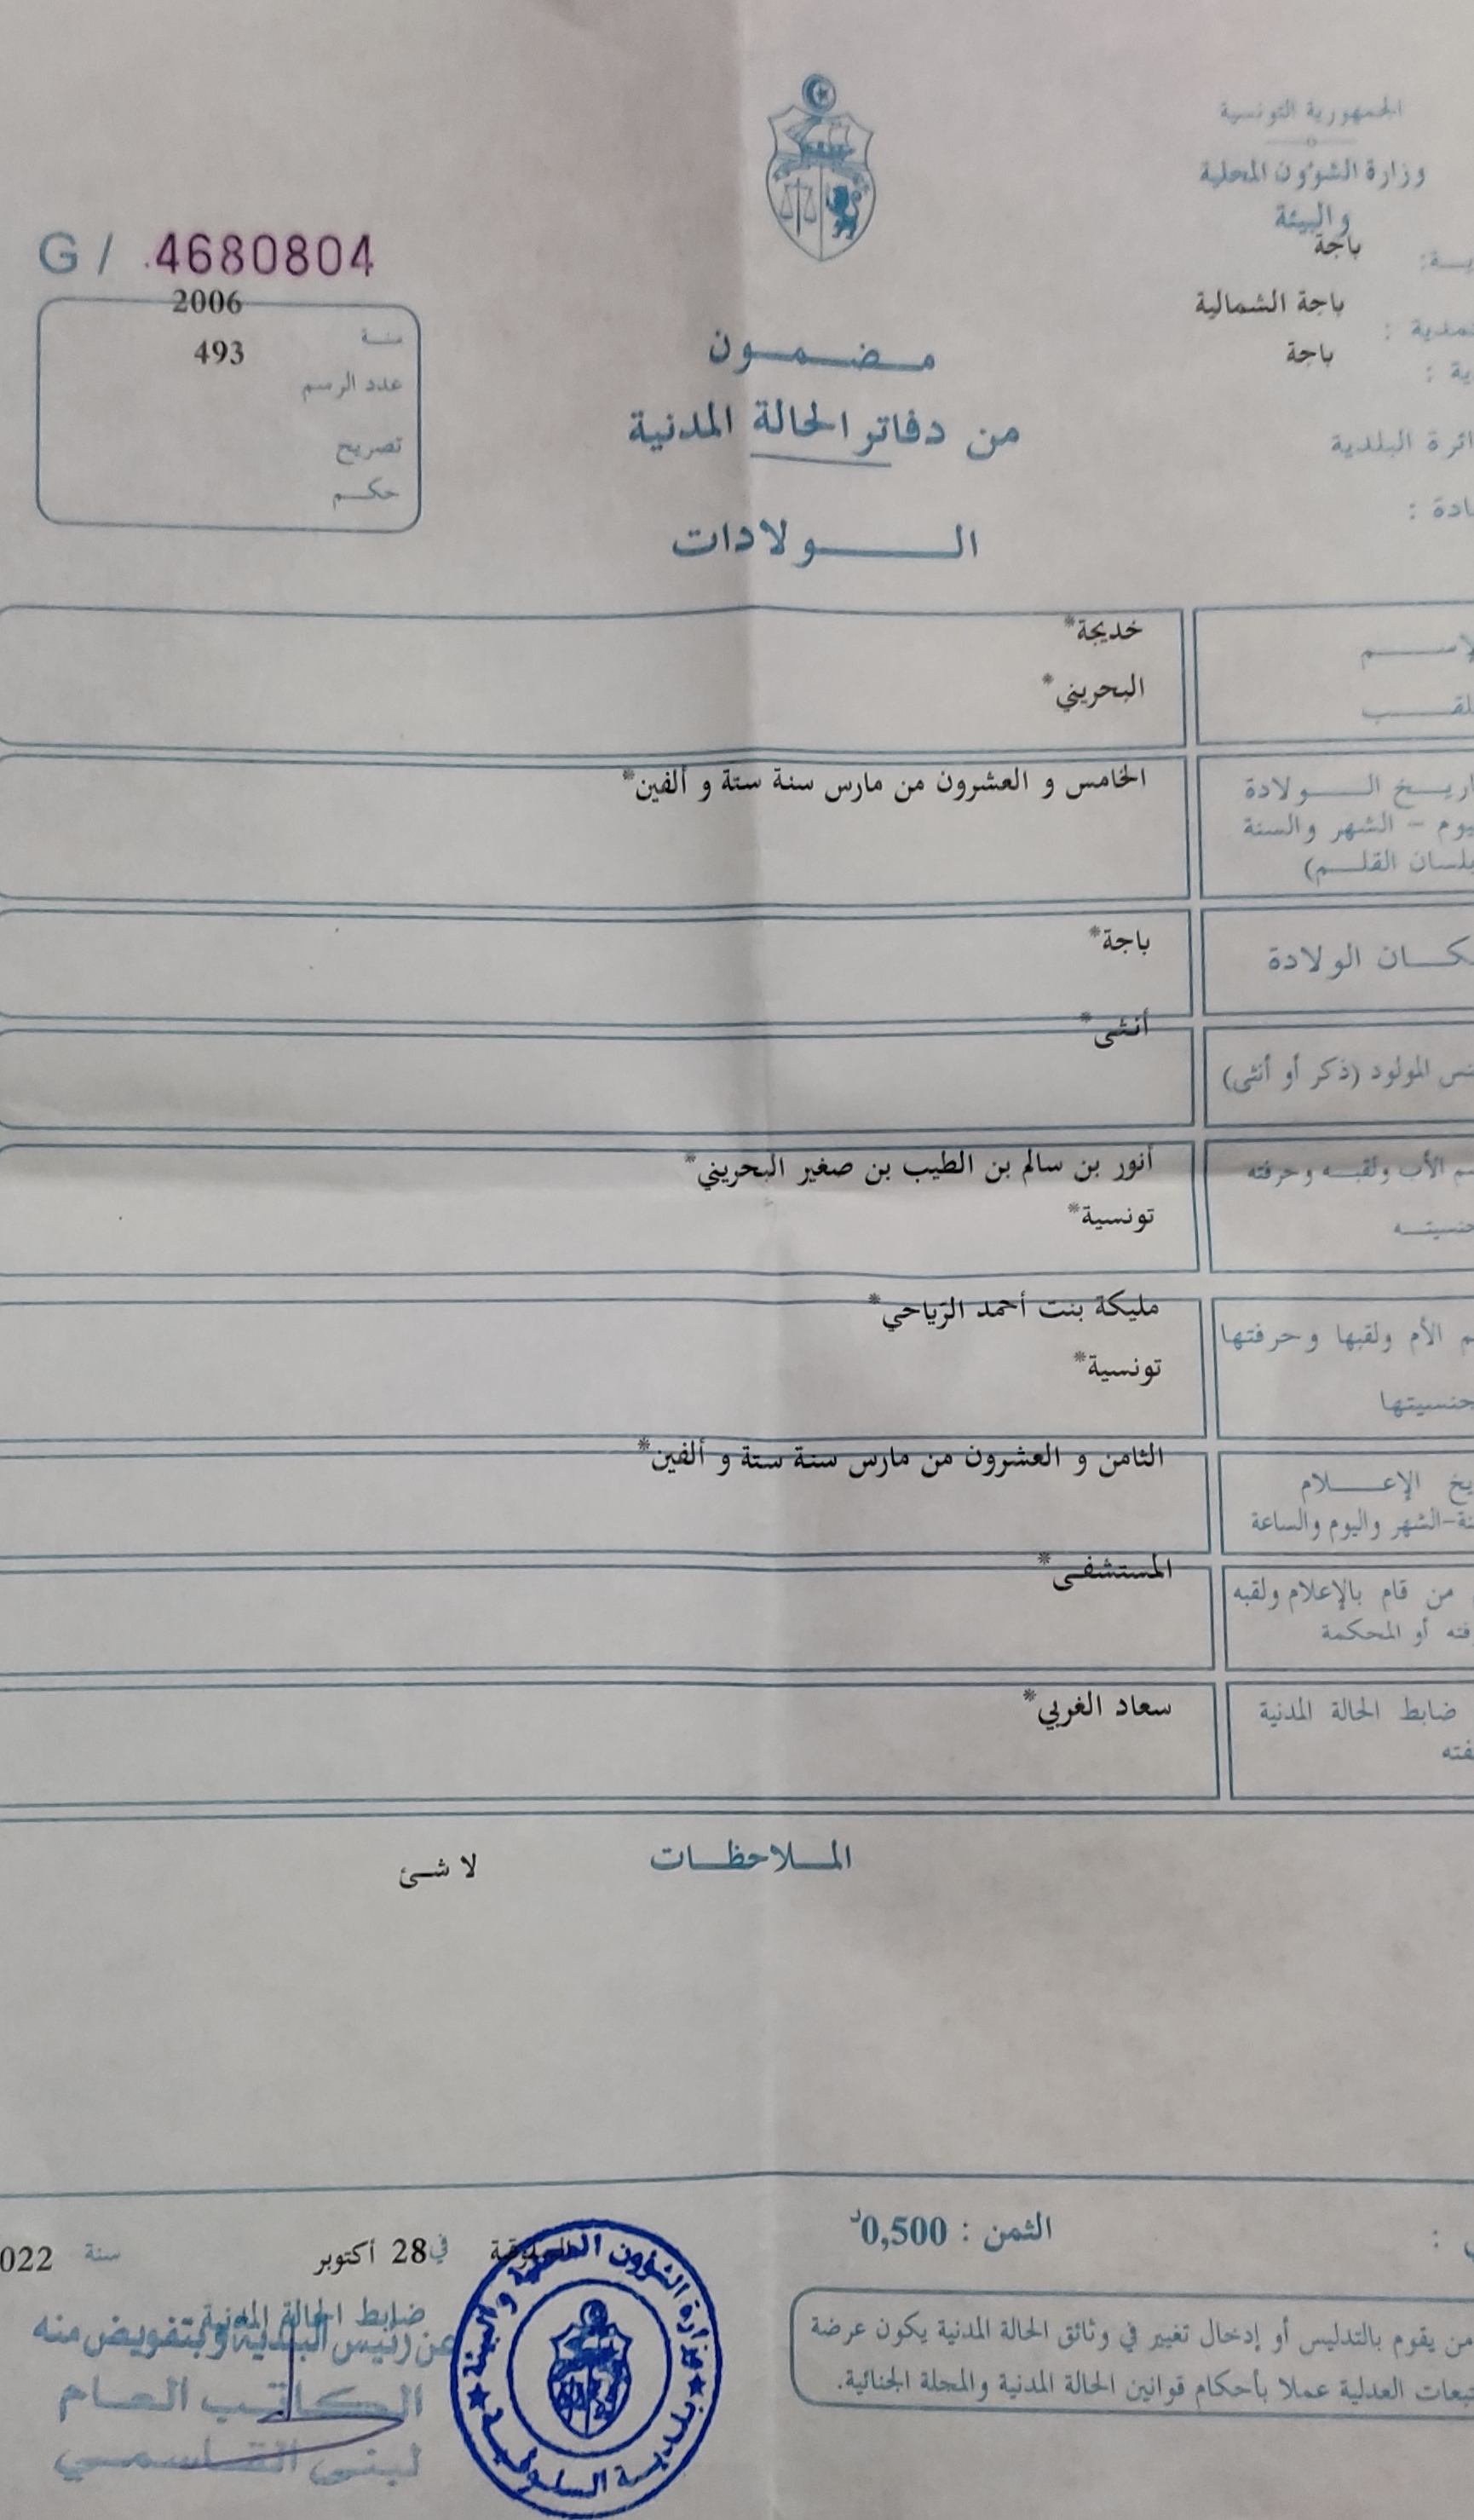 الجمهورية التونسية
وزارة الشؤون المحلية
والبيئة
باجة
باجة الشمالية
باجة
الدائرة البلدية
G / 4680804
2006
سنة
493
عدد الرسم
تصريح
حكم
مضمون
من دفاتر الحالة المدنية
الولادات
الإسم خديجة*
اللقب البحريني*
تاريخ الولادة الخامس و العشرون من مارس سنة ستة و ألفين*
اليوم - الشهر والسنة
بلسان القلم)
مكان الولادة باجة*
أنثى*
جنس المولود (ذكر أو أنثى)
إسم الأب ولقبه وحرفته أنور بن سالم بن الطيب بن صغير البحريني*
جنسيته تونسية*
مليكة بنت أحمد الرياحي*
إسم الأم ولقبها وحرفتها
جنسيتها تونسية*
الثامن و العشرون من مارس سنة ستة و ألفين*
تاريخ الإعلام
السنة-الشهر واليوم والساعة
المستشفى*
من قام بالإعلام ولقبه
أو المحكمة
ضابط الحالة المدنية سعاد الغربي*
الملاحظات
لا شئ
الثمن : 0,500د
السلوقية في 28 أكتوبر سنة 022
ضابط الحالة المدنية
عن رئيس البلدية وبتفويض منه
الكاتب العام
لبنى القاسمي
وزارة الشؤون المحلية والبيئة
بلدية السلوقية
من يقوم بالتدليس أو إدخال تغيير في وثائق الحالة المدنية يكون عرضة
للتتبعات العدلية عملا بأحكام قوانين الحالة المدنية والمجلة الجنائية.